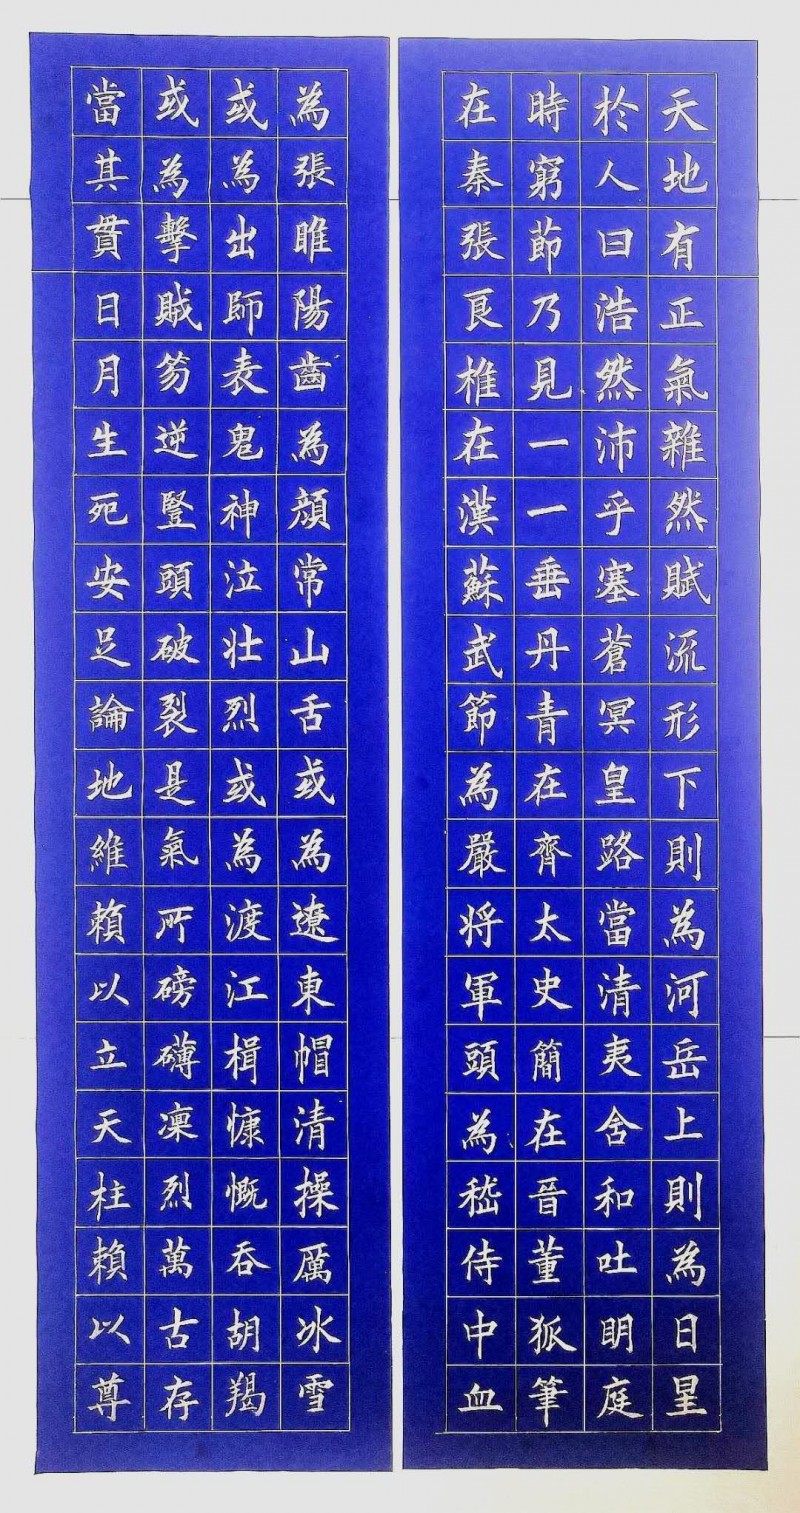 天地有正氣雜然賦流形下則為河岳上則為日星
於人曰浩然沛乎塞蒼冥皇路當清夷含和吐明庭
時窮節乃見一一垂丹青在齊太史簡在晉董狐筆
在秦張良椎在漢蘇武節為嚴將軍頭為嵇侍中血
為張睢陽齒為顏常山舌或為遼東帽清操厲冰雪
或為出師表鬼神泣壯烈或為渡江楫慷慨吞胡羯
或為擊賊笏逆豎頭破裂是氣所磅礴凜烈萬古存
當其貫日月生死安足論地維賴以立天柱賴以尊